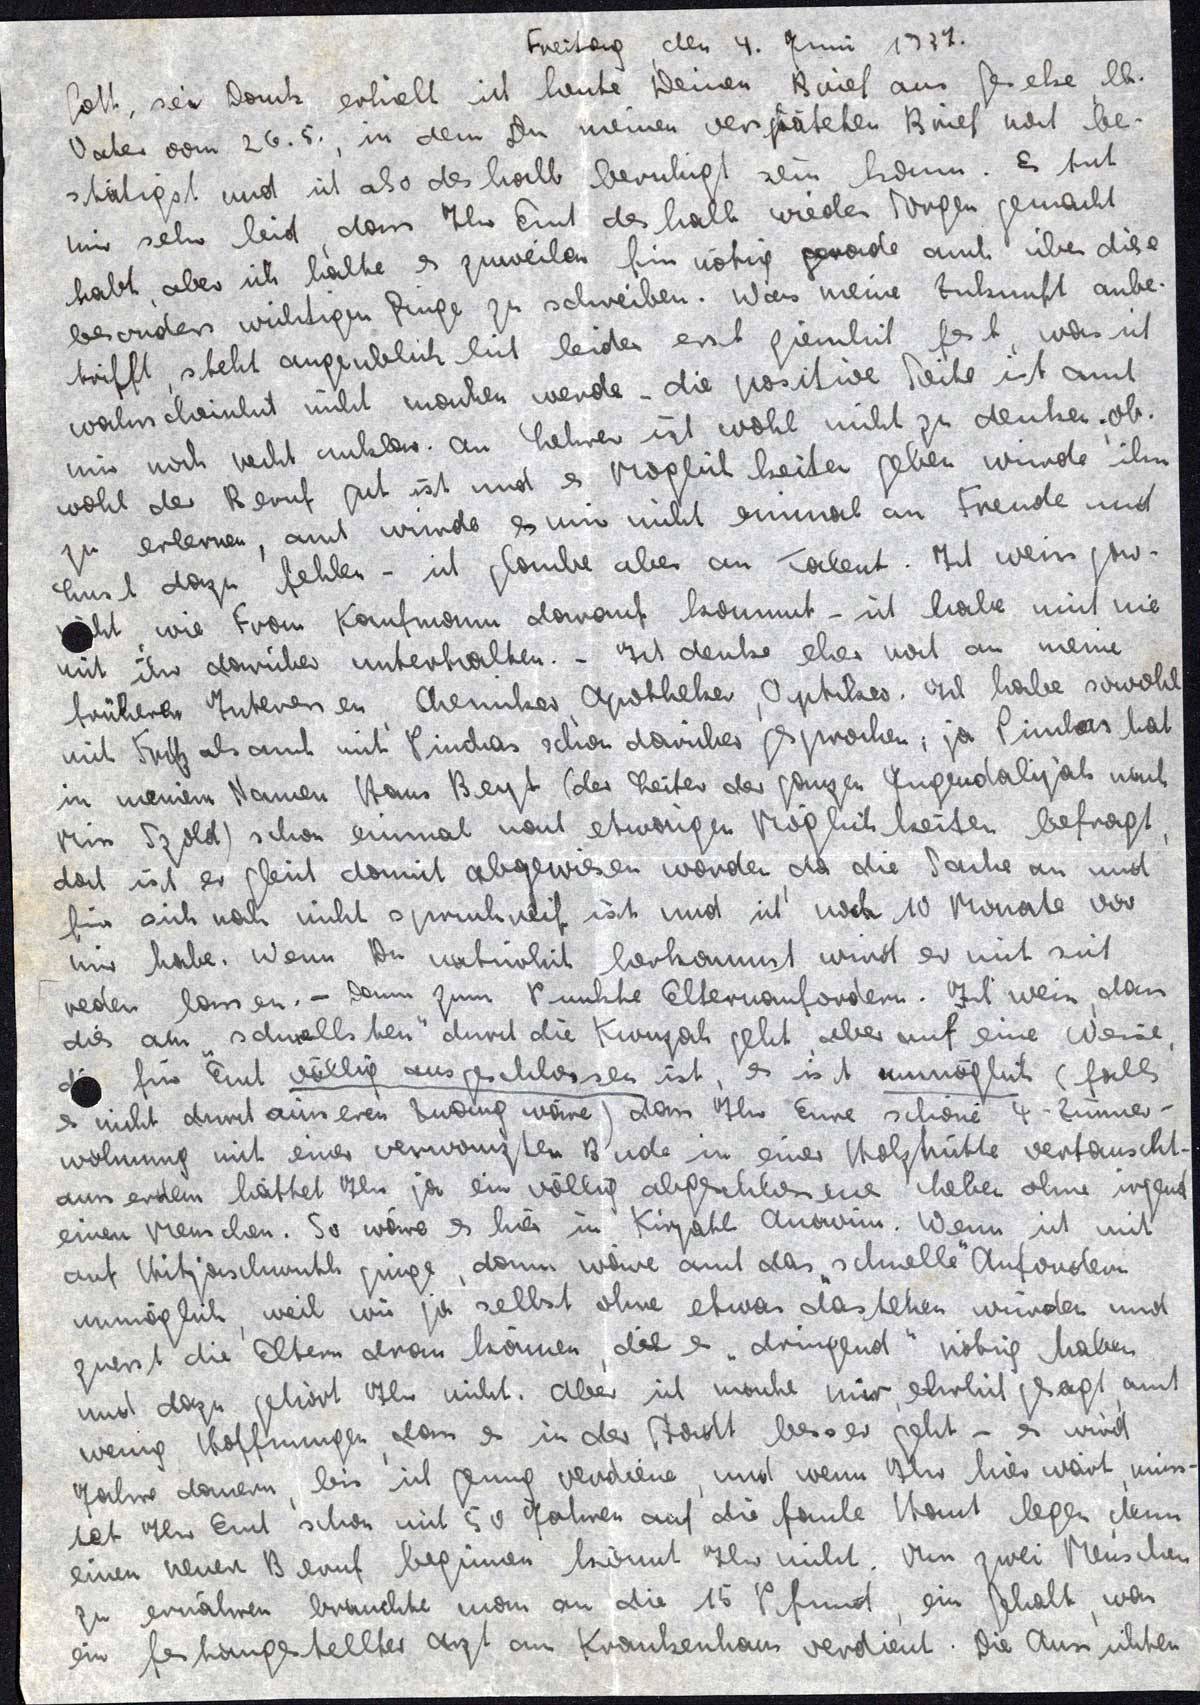 Freitag, den 4. Juni 1937.
Gott, sei Dank erhielt ich heute Deinen Brief aus Geseke, lb.
Vater vom 26.5., in dem Du meinen verspäteten Brief noch be-
stätigst und ich also deshalb beruhigt sein kann. Es tut
mir sehr leid, dass Ihr Euch deshalb wieder Sorgen gemacht
habt, aber ich halte es zuweilen für nötig gerade auch über diese
besonders wichtigen Dinge zu schreiben. Was meine Zukunft anbe-
trifft, steht augenblicklich leider erst ziemlich fest, was ich
wahrscheinlich nicht machen werde - die positive Seite ist auch
mir noch recht unklar. An Lehrer ist wohl nicht zu denken, ob-
wohl der Beruf gut ist und es Möglichkeiten geben würde ihn
zu erlernen, auch würde es mir nicht einmal an Freude und
Lust dazu fehlen - ich glaube aber an Talent. Ich weiss gar-
nicht, wie Frau Kaufmann darauf kommt - ich habe mich nie
mit ihr darüber unterhalten. - Ich denke eher noch an meine
früheren Interessen, Chemiker, Apotheker, Optiker. Ich habe sowohl
mit Fritz als auch mit Pinchas schon darüber gesprochen; ja Pinchas hat
in meinem Namen Hans Beyt (der Leiter der ganzen Jugendalijah nach
Miss Szold) schon einmal nach etwaigen Möglichkeiten befragt,
doch ist er gleich damit abgewiesen worden, da die Sache an und
für sich noch nicht spruchreif ist und ich noch 10 Monate vor
mir habe. Wenn Du natürlich herkommst wird er mit sich
reden lassen. - Dann zum Punkte Elternanfordern. Ich weiss, dass
dies am „schnellsten" durch die Kwuzah geht, aber auf eine Weise,
die für Euch völlig ausgeschlossen ist, es ist unmöglich (falls
es nicht durch äusseren Zwang wäre) dass Ihr Eure schöne 4-Zimmer-
wohnung mit einer verwanzten Bude in einer Holzhütte vertauscht -
ausserdem hättet Ihr ja ein völlig abgeschlossene Leben ohne irgend
einen Menschen. So wäre es hier in Kirjath Anavim. Wenn ich mit
auf Hitjaschwuth ginge, dann wäre auch das „schnelle" Anfordern
unmöglich, weil wir ja selbst ohne etwas dastehen würden und
zuerst die Eltern dran kämen, die es „dringend" nötig haben
und dazu gehört Ihr nicht. Aber ich mache mir, ehrlich gesagt, auch
wenig Hoffnungen, dass es in der Stadt besser geht - es wird
Jahre dauern, bis ich genug verdiene, und wenn Ihr hier wärt, müss-
tet Ihr Euch schon mit 50 Jahren auf die faule Haut legen, denn
einen neuen Beruf beginnen könnt Ihr nicht. Um zwei Menschen
zu ernähren brauchte man an die 15 Pfund, ein Gehalt, was
ein festangestellter Arzt am Krankenhaus verdient. Die Aussichten